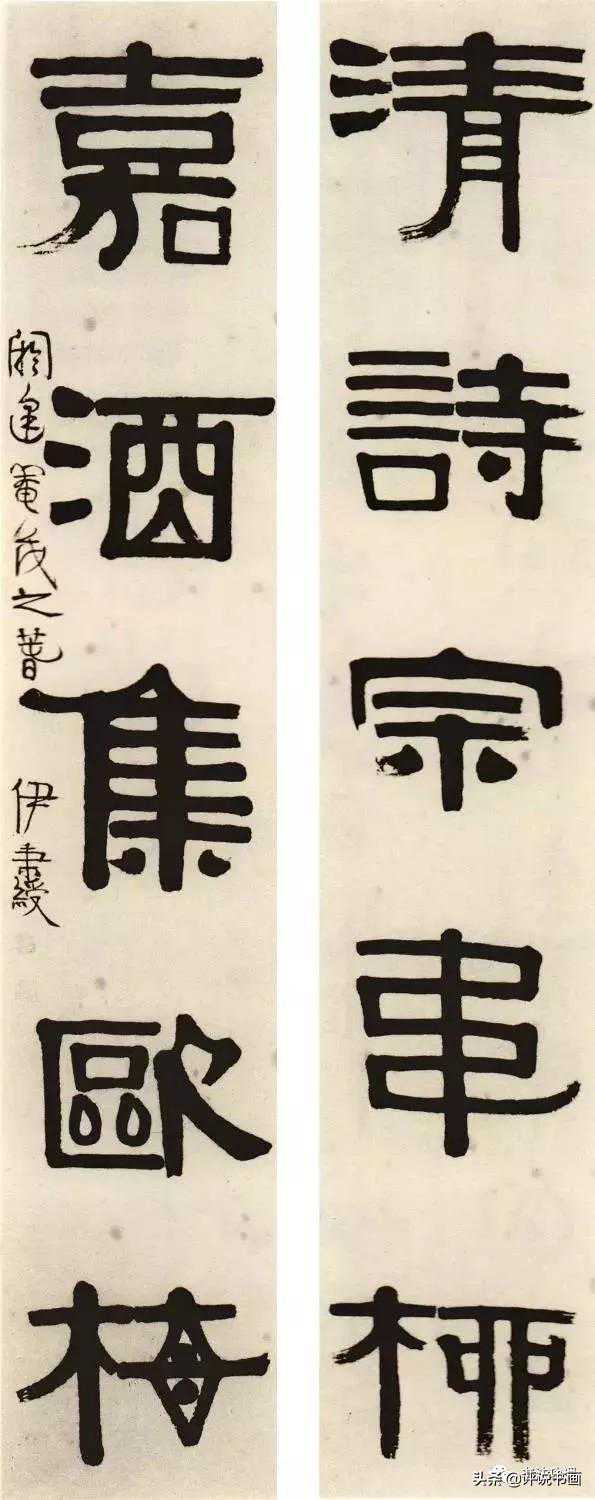 清詩宗韋柳
嘉酒集歐梅
閼逢奄茂之春 伊秉綬
头条@评说书画